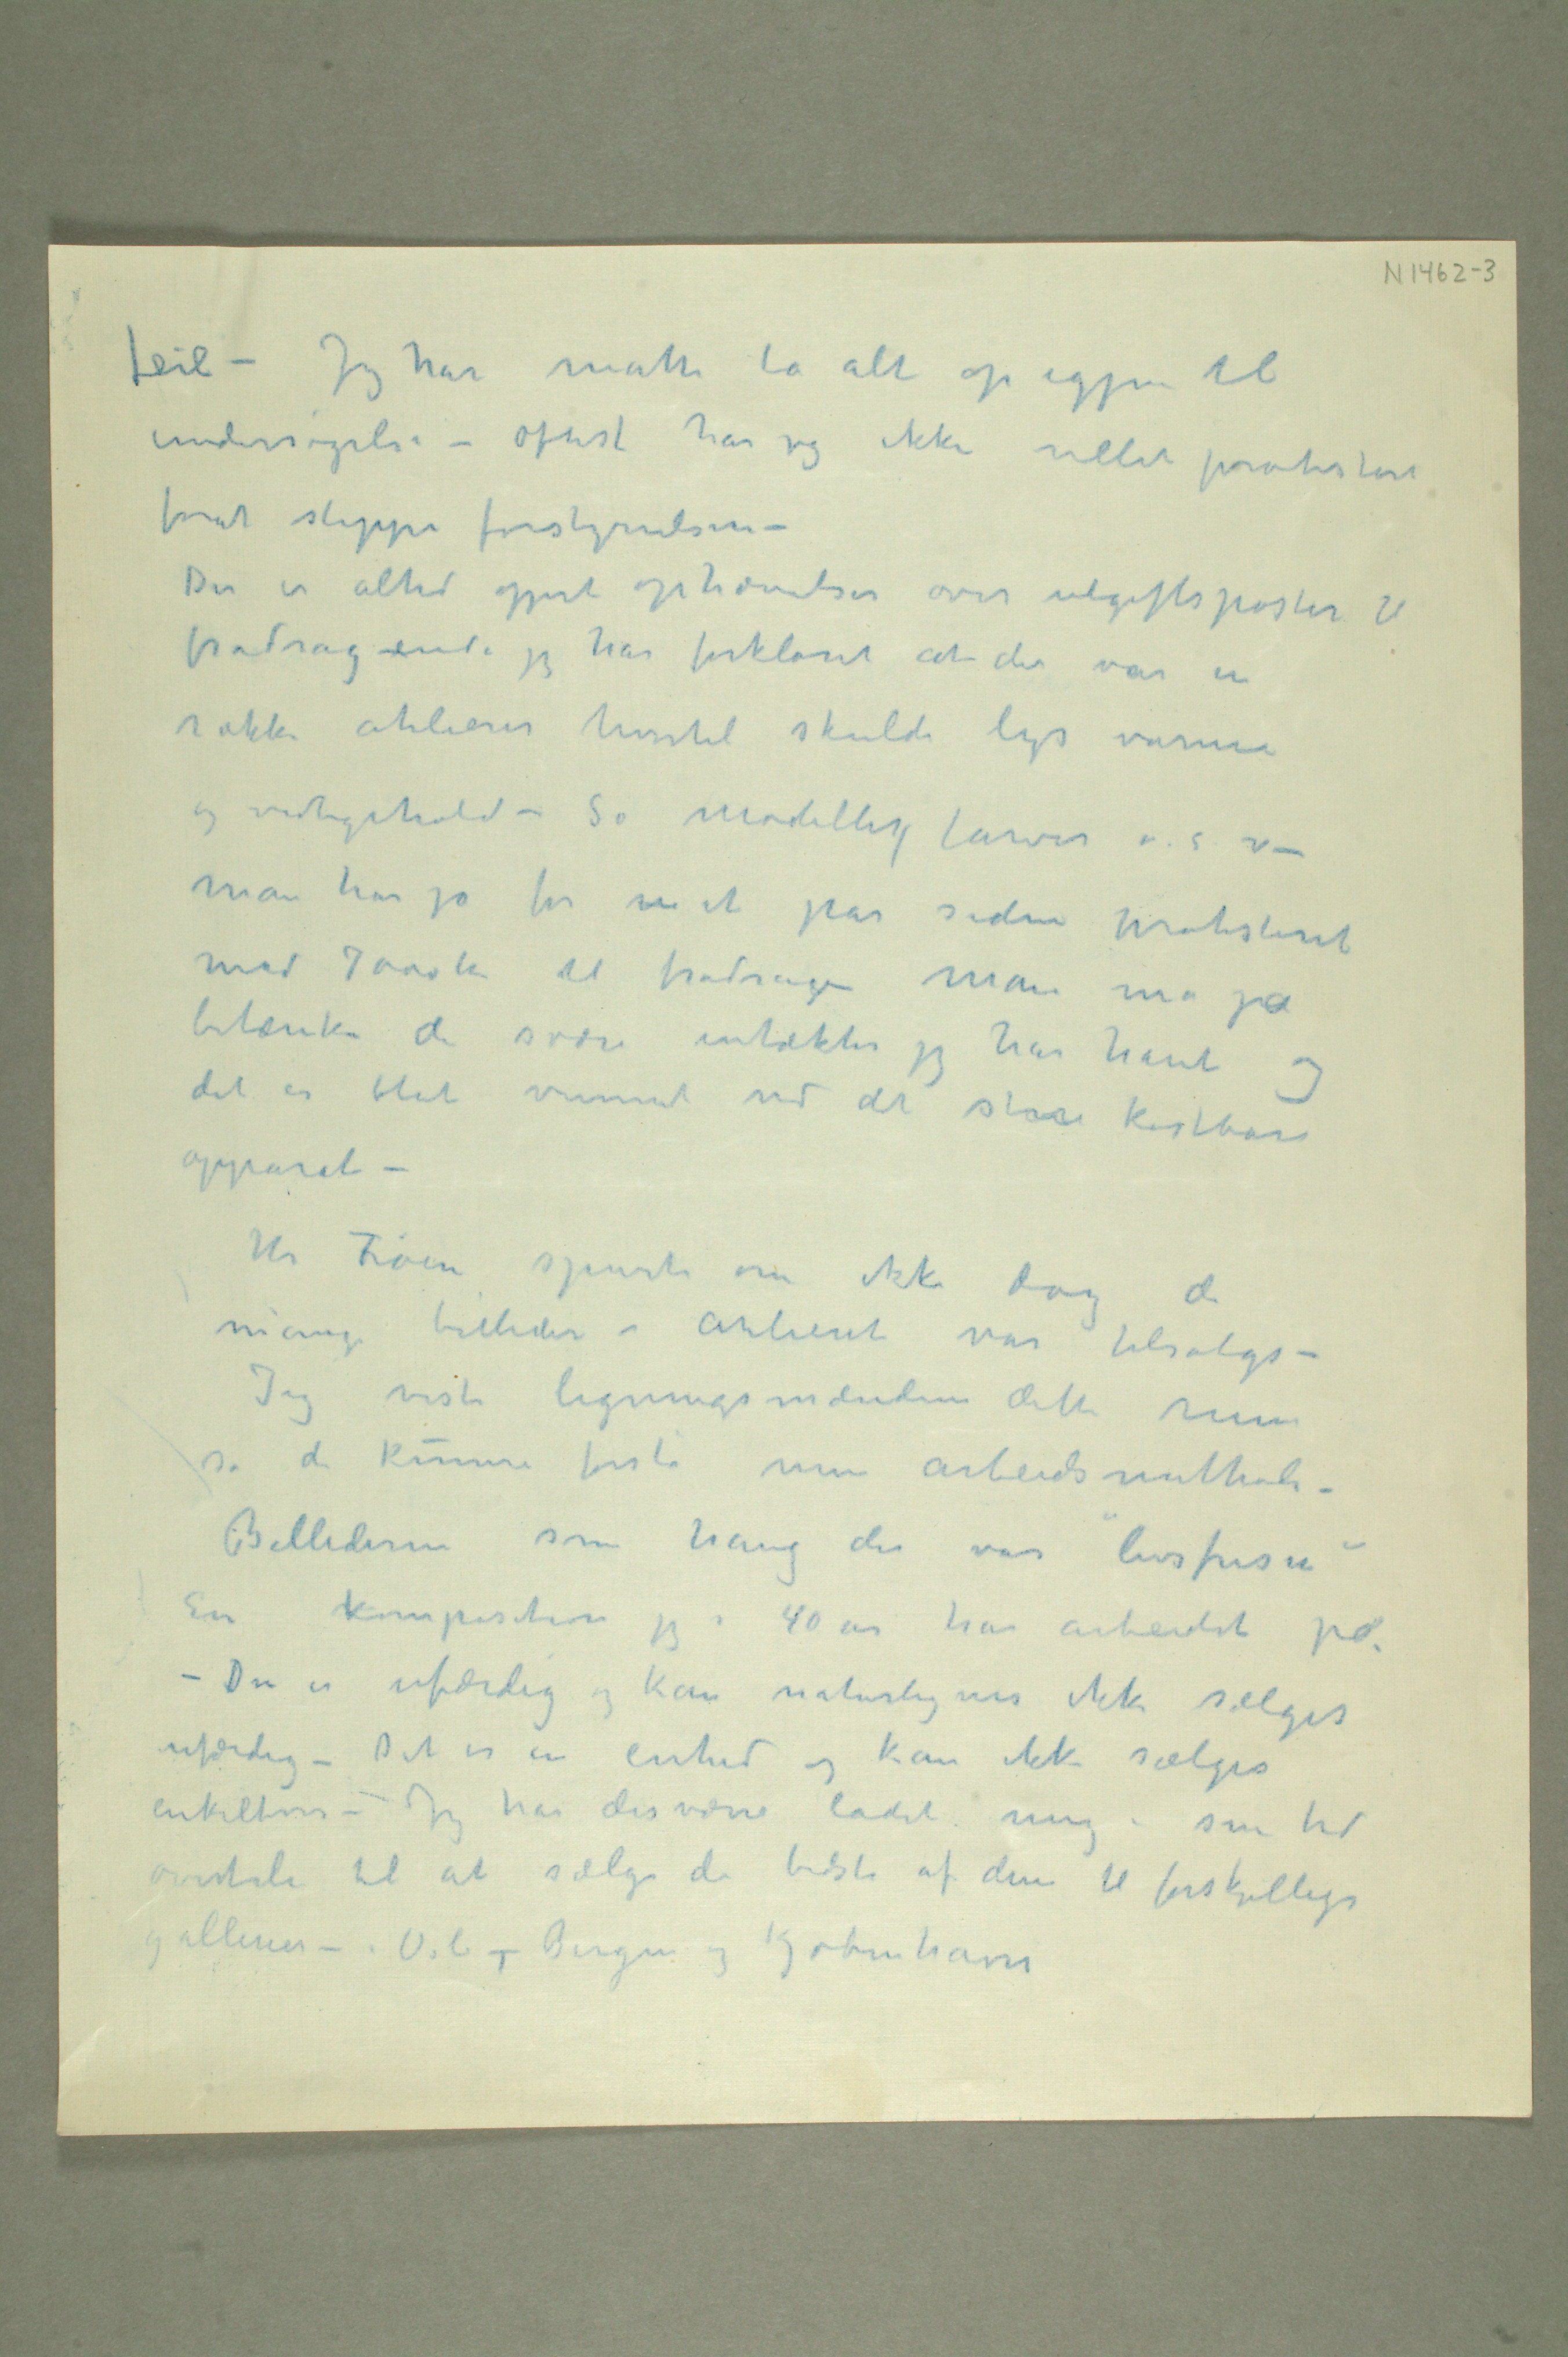 N1462-3
feil – Jeg har måtte ta alt op igjen til
undersøgelse – Oftest har jeg ikke villet protestere
forat slippe forstyrrelsen –
Der er altid gjort ophævelser over utgiftsposter til
fradrag enda jeg har forklaret at der var en
række atelierer hvortil skulde lys varme
og vedligehold – Så modeller farver o.s.v –
man har jo for et par siden protesteret
med 7000 kr til fradrag man må jo
betænke de svære intækter jeg har havt og
det er blet vunnet ved det store kostbare
apparat –
Hr Tiøen spurte om ikke dog de
mange billeder i atelieret var tilsalgs –
Jeg viste ligningsmændene dette rum
så de kunne forstå min arbeidsmethode –
Billederne som hang der var "livsfrisen"
En komposition jeg i 40 år har arbeidet på.
– Den er ufærdig og kan naturligvis ikke sælges
ufærdig – Det er en enhed og kan ikke sælges
enkeltvis – Jeg har desværre ladet mig i sin tid
overtale til at sælge de bedste af dem til forskjellige
gallerier – i Oslo Bergen og Kjøbenhavn